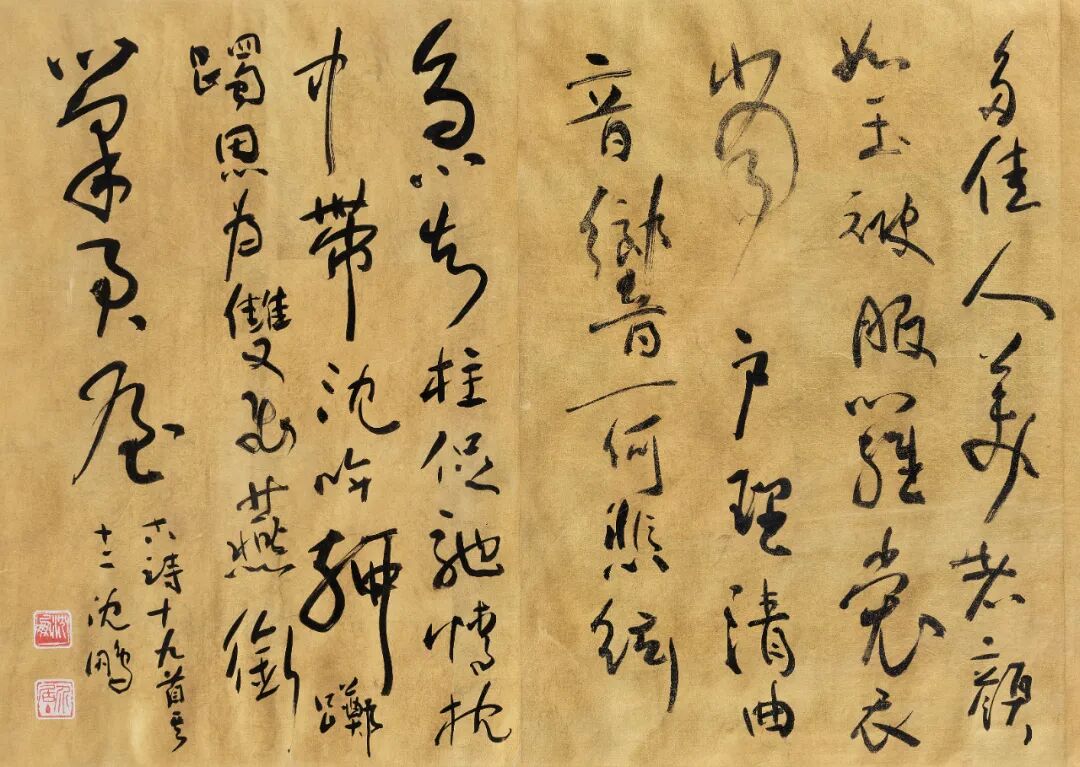 多佳人美者顏
如玉被服羅裳衣
當户理清曲
音響一何悲絃
急知柱促馳情
巾帶沈吟聊躑
躅思為雙飛燕銜
巢君屋
古詩十九首其
十二 沈鵬
沈鵬
介居